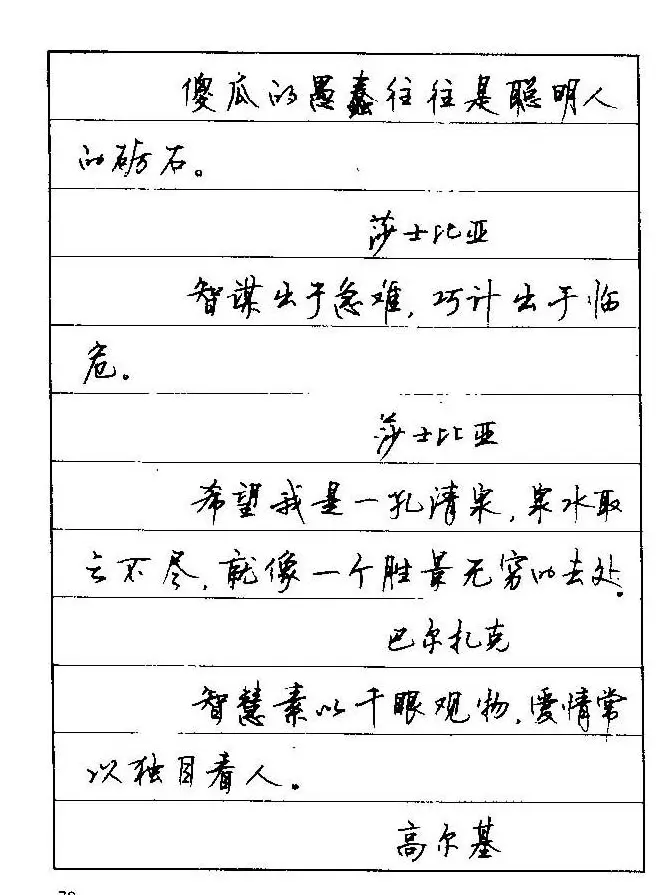 傻瓜的愚蠢往往是聪明人
的砺石。
莎士比亚
智谋出于急难,巧计出于临
危。
莎士比亚
希望我是一孔清泉,泉水取
之不尽,就像一个胜景无穷的去处。
巴尔扎克
智慧素以千眼观物,爱情常
以独目看人。
高尔基